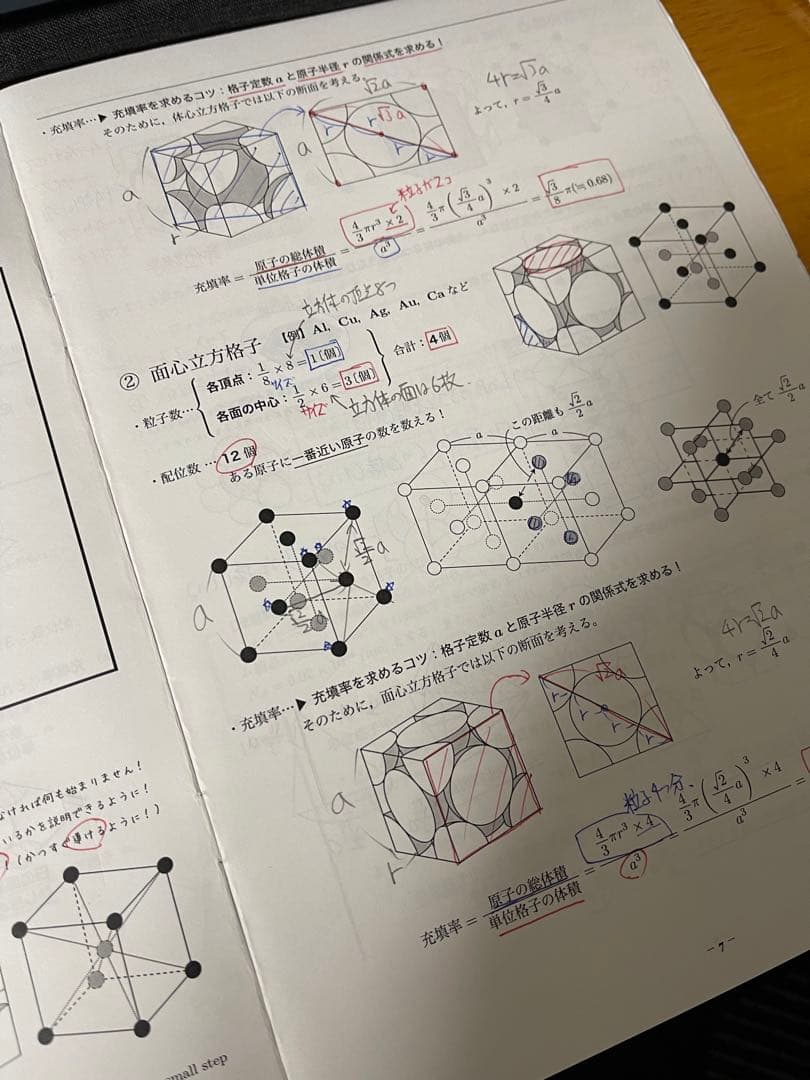 ・充填率…▶ 充填率を求めるコツ：格子定数 a と原子半径 r の関係式を求める！
そのために，体心立方格子では以下の断面を考える。
√2a
a
r
a
r
√3a
r
4r=√3a
よって，r = √3/4 a
粒子が2コ
充填率 = 原子の総体積/単位格子の体積 = 4/3 πr³ × 2 / a³ = 4/3 π(√3/4 a)³ × 2 / a³ = √3/8 π(≒0.68)
立方体の頂点8つ
② 面心立方格子 【例】Al，Cu，Ag，Au，Ca など
・粒子数…
各頂点：1/8 × 8 = 1〔個〕
各面の中心：1/2 × 6 = 3〔個〕
合計：4個
サイズ
サイズ
立方体の面は6枚.
・配位数… 12 個
ある原子に一番近い原子の数を数える！
a
この距離も √2/2 a
a
全て √2/2 a
a
√2/2 a
√2/2 a
・充填率…▶ 充填率を求めるコツ：格子定数 a と原子半径 r の関係式を求める！
そのために，面心立方格子では以下の断面を考える。
a
r
√2a
r
r
r
r
4r=√2a
よって，r = √2/4 a
粒子4つ分.
充填率 = 原子の総体積/単位格子の体積 = 4/3 πr³ × 4 / a³ = 4/3 π(√2/4 a)³ × 4 / a³ =
－7－
なければ何も始まりません！
いるかを説明できるように！
！（かつすぐ導けるように！）
small step